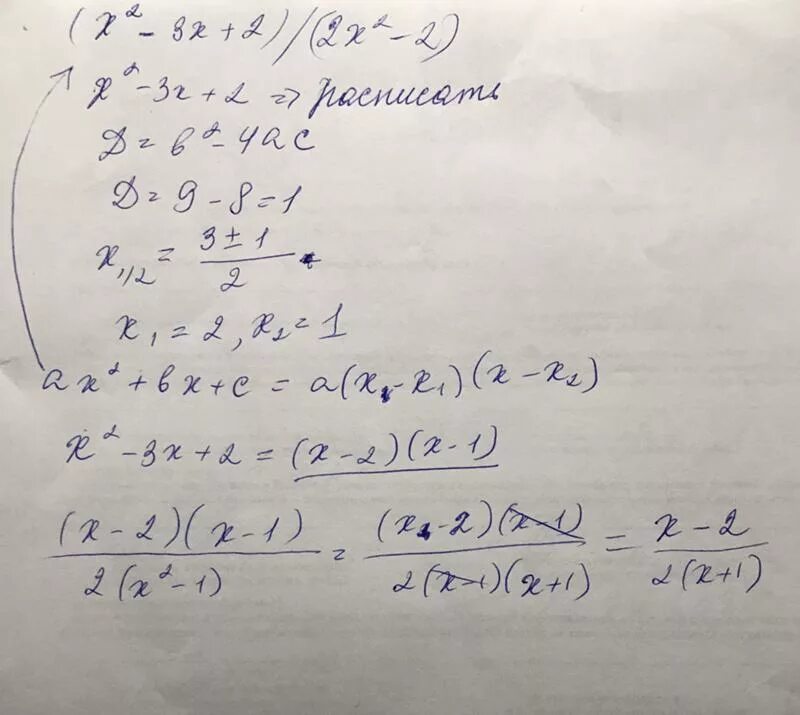 (x² - 3x + 2)/(2x² - 2)
x² - 3x + 2 => расписать
D = b² - 4ac
D = 9 - 8 = 1
x₁,₂ = (3 ± 1)/2
x₁ = 2, x₂ = 1
ax² + bx + c = a(x - x₁)(x - x₂)
x² - 3x + 2 = (x - 2)(x - 1)
(x - 2)(x - 1)/2(x² - 1) = (x - 2)(x - 1)/2(x - 1)(x + 1) = x - 2/2(x + 1)